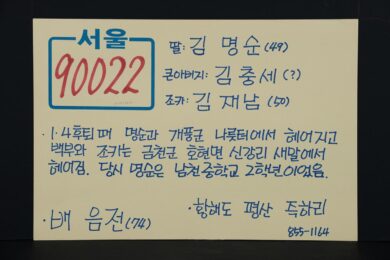 서울
90022
딸: 김 명순(49)
큰아버지: 김충세(?)
조카: 김재남(50)
·1·4후퇴 때 명순과 개풍군 나룻터에서 헤어지고
백부와 조카는 금천군 호현면 신강리 새말에서
헤어짐. 당시 명순은 남천중학교 2학년이었음.
·배 음전(74)
·황해도 평산 족하리
855-1164